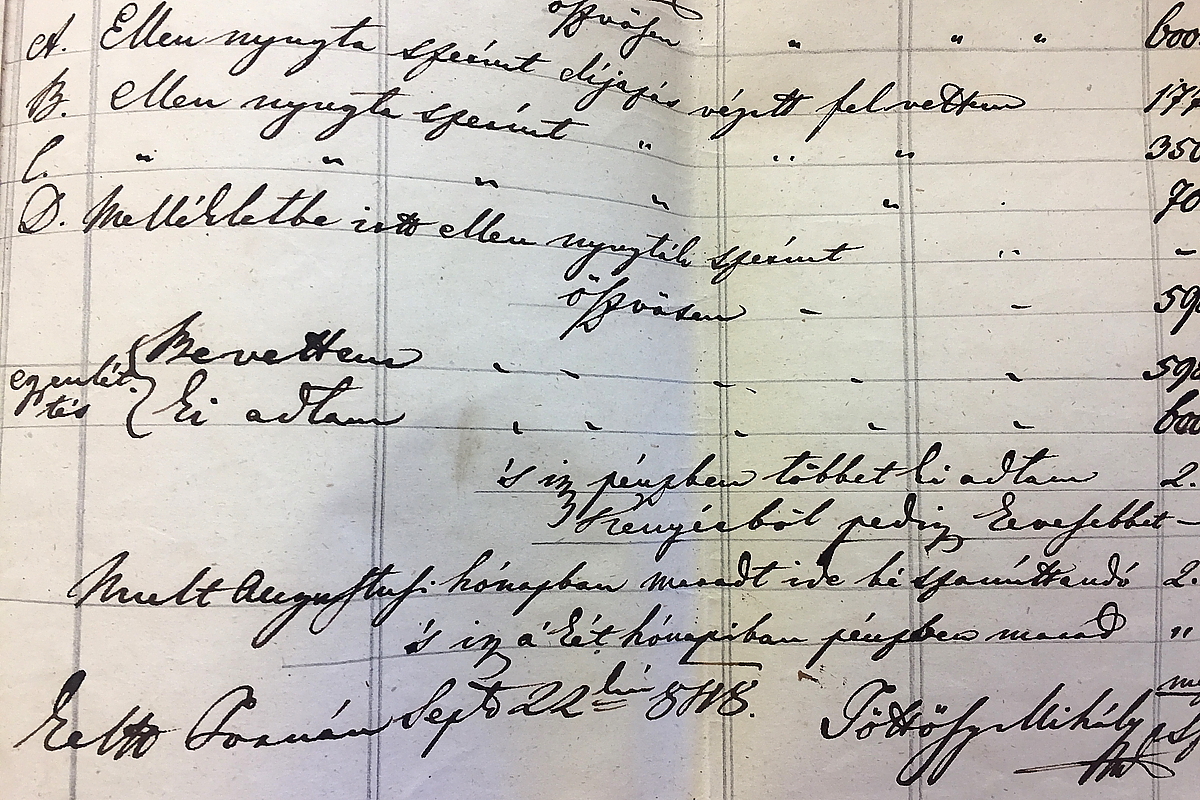 öszvösen " " " 600
A. Ellen nyugta szerént díjazás végett felvettem 177
B. Ellen nyugta szerént " " " 350
C. " " " " " 70
D. Mellékletbe irtt ellen nyugták szerént " -
öszvösen - - 598
egyenlítés { Bevettem - - - - - 598
Ki adtam - - - - - 600
's igy pénzben többet ki adtam 2.
Kenyérből pedig kevesebbet -
Mult Augustusi hónapban maradt ide bé számíttandó 2.
's igy a' két hónapban pénzben marad "
Keltt Sept 22 kén 848.
Töttösy Mihály